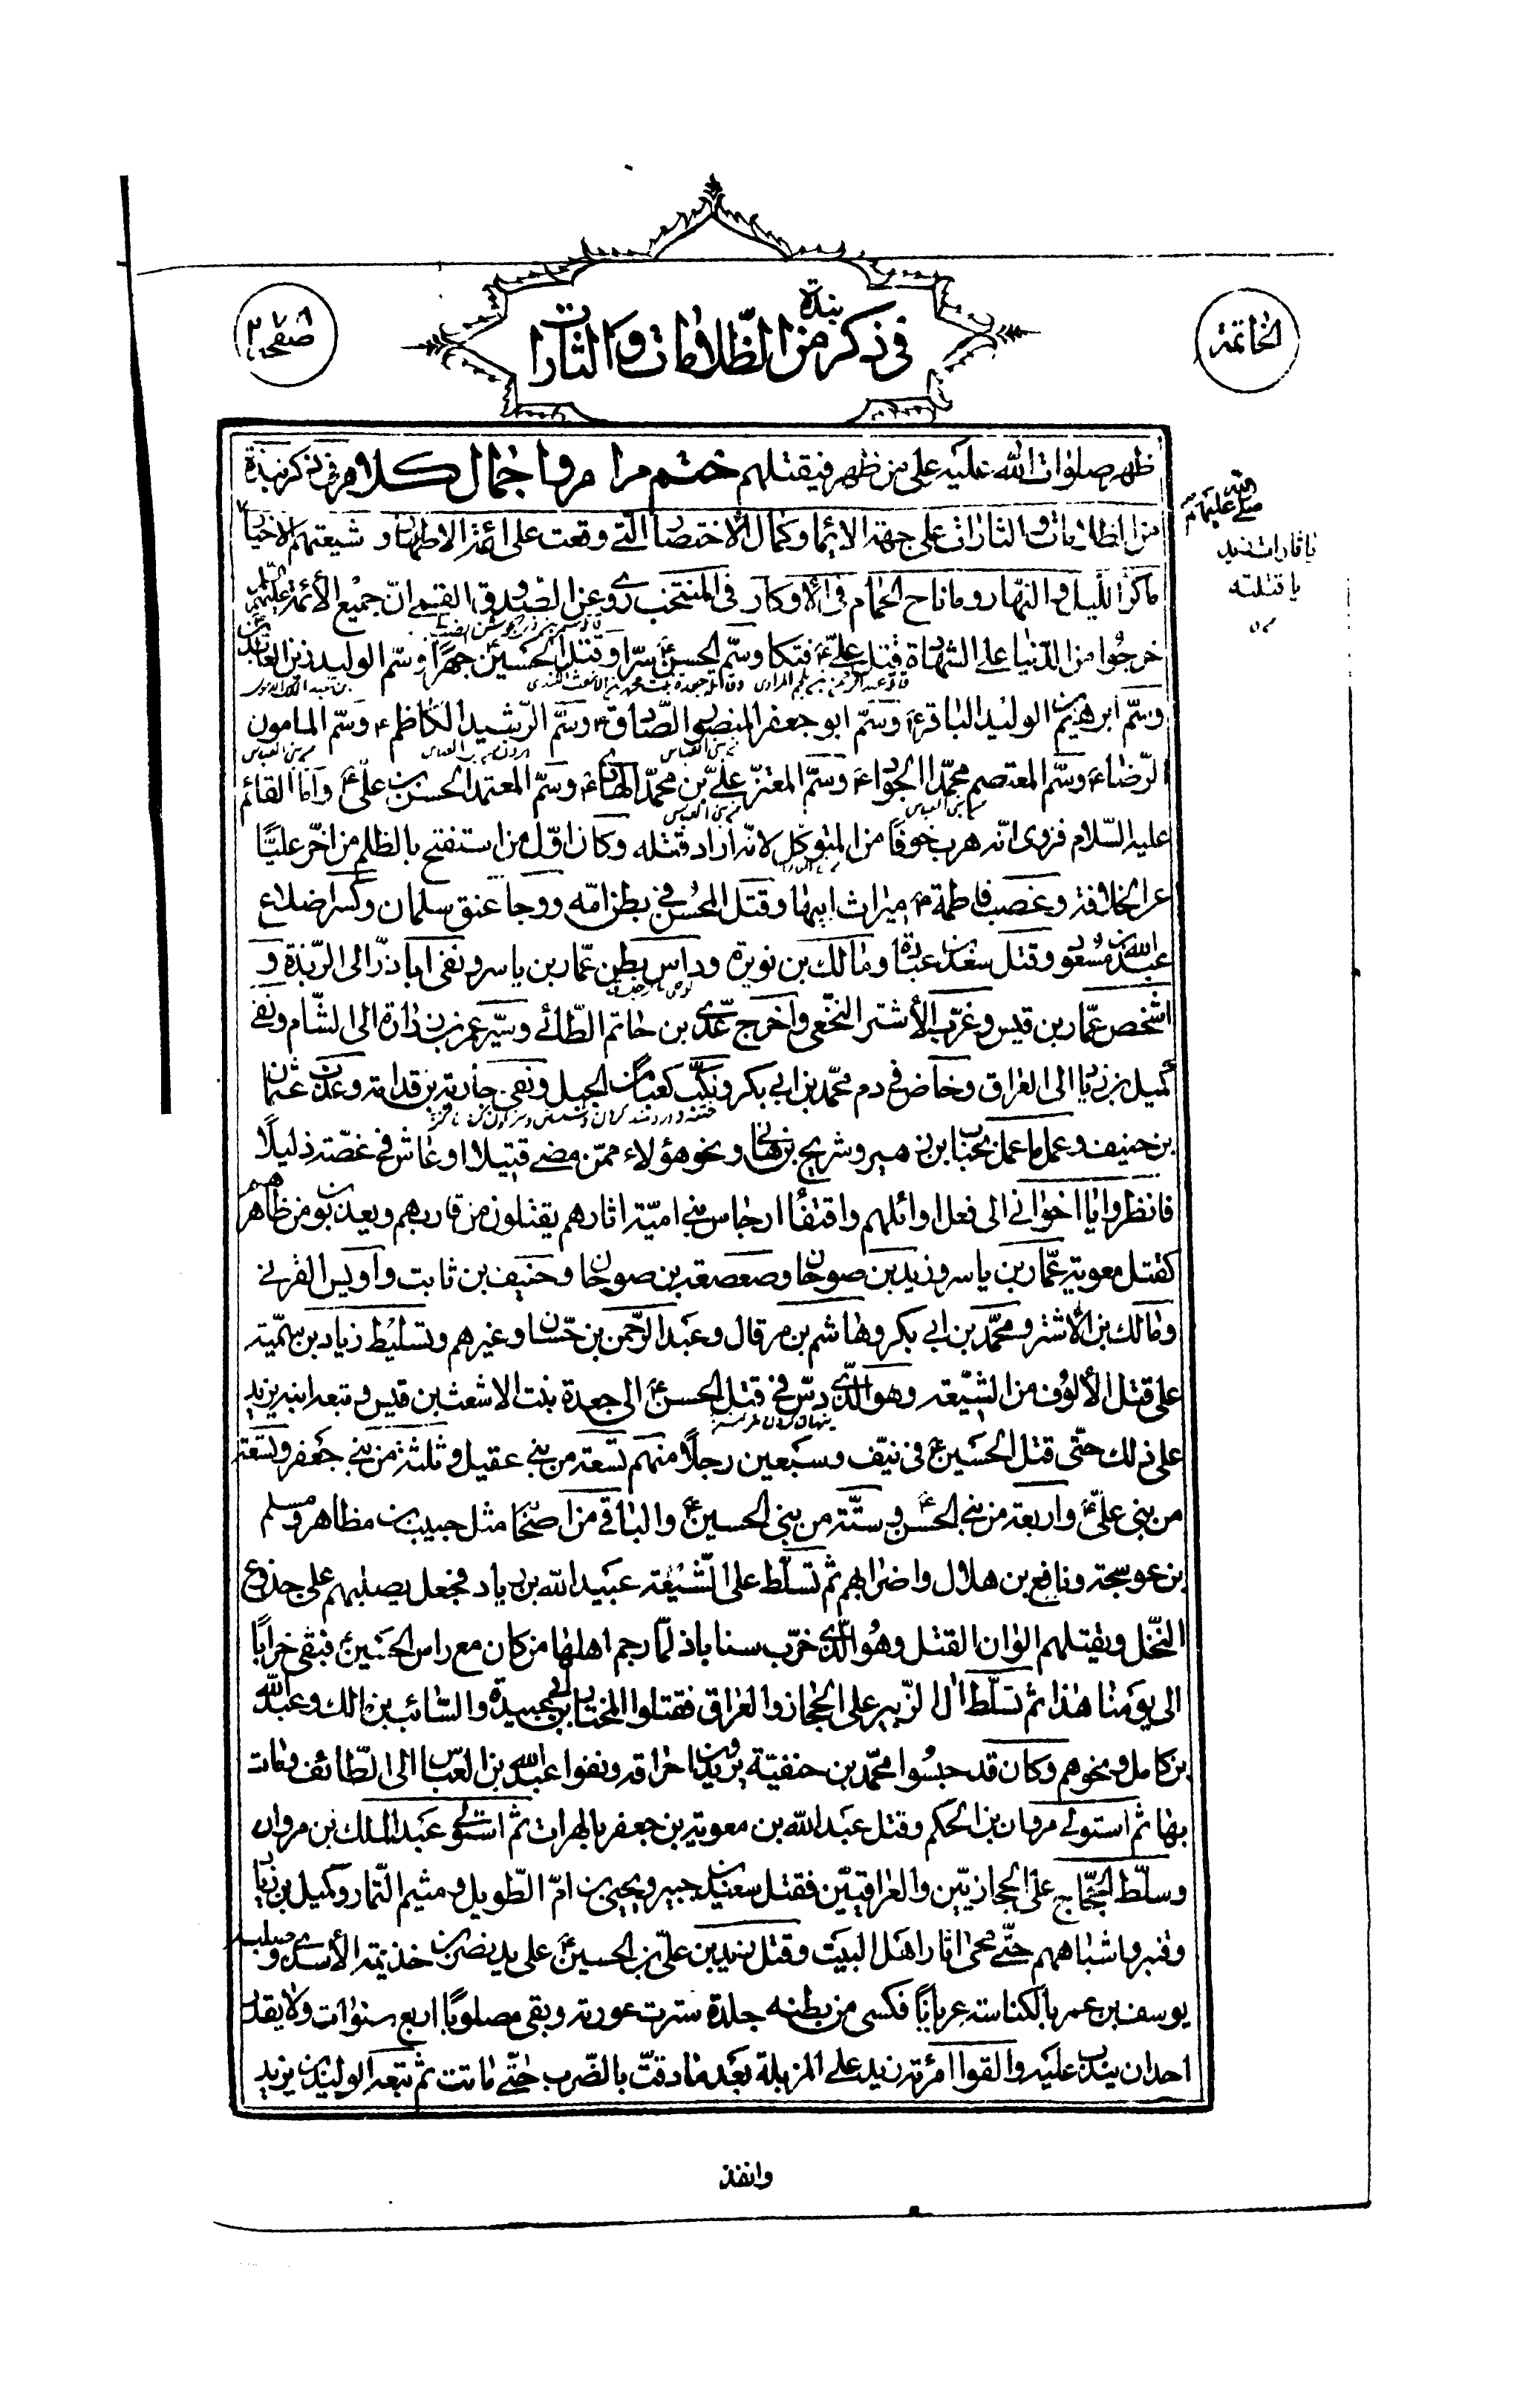 الخاتمة
في ذكر نبذة من الظلامات والثارات
صفحه ٢٧٨
ظهر صلوات الله عليه على من ظهر فيقتلهم ختم مرام واجمال كلام في ذكر نبذة
من الظلامات والثارات على جهة الايماء وكمال الاختصار التي وقعت على ائمة الاطهار وشيعتهم الاخيار
ما كرّ الليل والنهار وما ناح الحمام في الاوكار في المنتخب روى عن الصدوق القمي انّ جميع الأئمة عليهم
خرجوا من الدّنيا على الشهادة قتل عليّ ع فتكا وسمّ الحسن ع سرّا وقتل الحسين ع جهرًا وسمّ الوليد زين العابدين
وسمّ ابرهيم بن الوليد الباقر ع وسمّ ابو جعفر المنصور الصّادق ع وسمّ الرّشيد الكاظم ع وسمّ المامون
الرّضا ع وسمّ المعتصم محمّد الجواد ع وسمّ المعتزّ عليّ بن محمّد الهادي ع وسمّ المعتمد الحسن بن عليّ ع وامّا القائم
عليه السلام فروى انّه هرب خوفًا من المتوكّل لانّه اراد قتله وكان اوّل من استفتح بالظلم من اخّر عليّا
عن الخلافة وغصب فاطمة ع ميراث ابيها وقتل المحسن في بطن امّه ووجأ عنق سلمان وكسر اضلاع
عبد الله بن مسعود وقتل سعد بن عبادة ومالك بن نويرة وداس بطن عمّار بن ياسر ونفى اباذرّ الى الرّبذة و
اشخص عمّار بن قيس وغرّب الأشتر النخعي واخرج عدي بن حاتم الطّائي وسيّر عمر بن زرارة الى الشّام ونفى
كميل بن زياد الى العراق وخاض في دم محمّد بن ابي بكر ونكّب كعب بن الجبل ونفى جارية بن قدامة وعذّب عثمان
بن حنيف وعمل ما عمل بحباب بن زهير وشريح بن هاني ونحو هؤلاء ممّن مضى قتيلا او عاش في غصّته ذليلًا
فانظروا يا اخواني الى فعل اوائلهم واقتفاء ارجاس بني اميّة اثارهم يقتلون من قاربهم ويعذبون من ظاهرهم
كقتل معوية عمّار بن ياسر وزيد بن صوحان وصعصعة بن صوحان وحنيف بن ثابت واويس القرني
ومالك بن الأشتر ومحمّد بن ابي بكر وهاشم بن مرقال وعبد الرّحمن بن حسّان وغيرهم وتسليط زياد بن سميّة
على قتل الألوف من الشّيعة وهو الّذي دسّ في قتل الحسن ع الى جعدة بنت الاشعث بن قيس وتبعه ابنه يزيد
على ذلك حتّى قتل الحسين ع في نيّف وسبعين رجلًا منهم تسعة من بني عقيل وثلثة من بني جعفر وتسعة
من بني عليّ ع واربعة من بني الحسن ع وستّة من بني الحسين ع والباقي من اصحابه مثل حبيب بن مظاهر ومسلم
بن عوسجة ونافع بن هلال واضرابهم ثم تسلّط على الشّيعة عبيد الله بن زياد فجعل يصلبهم على جذوع
النخل ويقتلهم الوان القتل وهو الّذي خرّب سناباذ لمّا رجم اهلها من كان مع راس الحسين ع فبقى خرابًا
الى يومنا هذا ثم تسلّط ال الزّبير على الحجاز والعراق فقتلوا المختار بن ابي عبيدة والسّائب بن مالك وعبد الله
بن كامل ونحوهم وكان قد حبسوا محمّد بن حنفيّة يريدون احراقه ونفوا عبد الله بن العبّاس الى الطّائف ومات
بها ثم استولى مروان بن الحكم وقتل عبد الله بن معوية بن جعفر بالهرات ثم استولى عبد الملك بن مروان
وسلّط الحجّاج على الحجازيّين والعراقيّين فقتل سعيد بن جبير ويحيى بن امّ الطّويل وميثم التمار وكميل بن زياد
وقنبر واشباههم حتّى محى اثار اهل البيت وقتل زيد بن عليّ بن الحسين ع على يد نصر بن خذيمة الأسدي وصلبه
يوسف بن عمر بالكناسة عريانًا فكسى من بطنه جلدة سترت عورته وبقى مصلوبًا اربع سنوات ولا يقدر
احد ان يندب عليه والقوا امرئة زيد على المزبلة بعد ما دقّت بالضّرب حتّى ماتت ثم تبعه الوليد بن يزيد
وانفذ